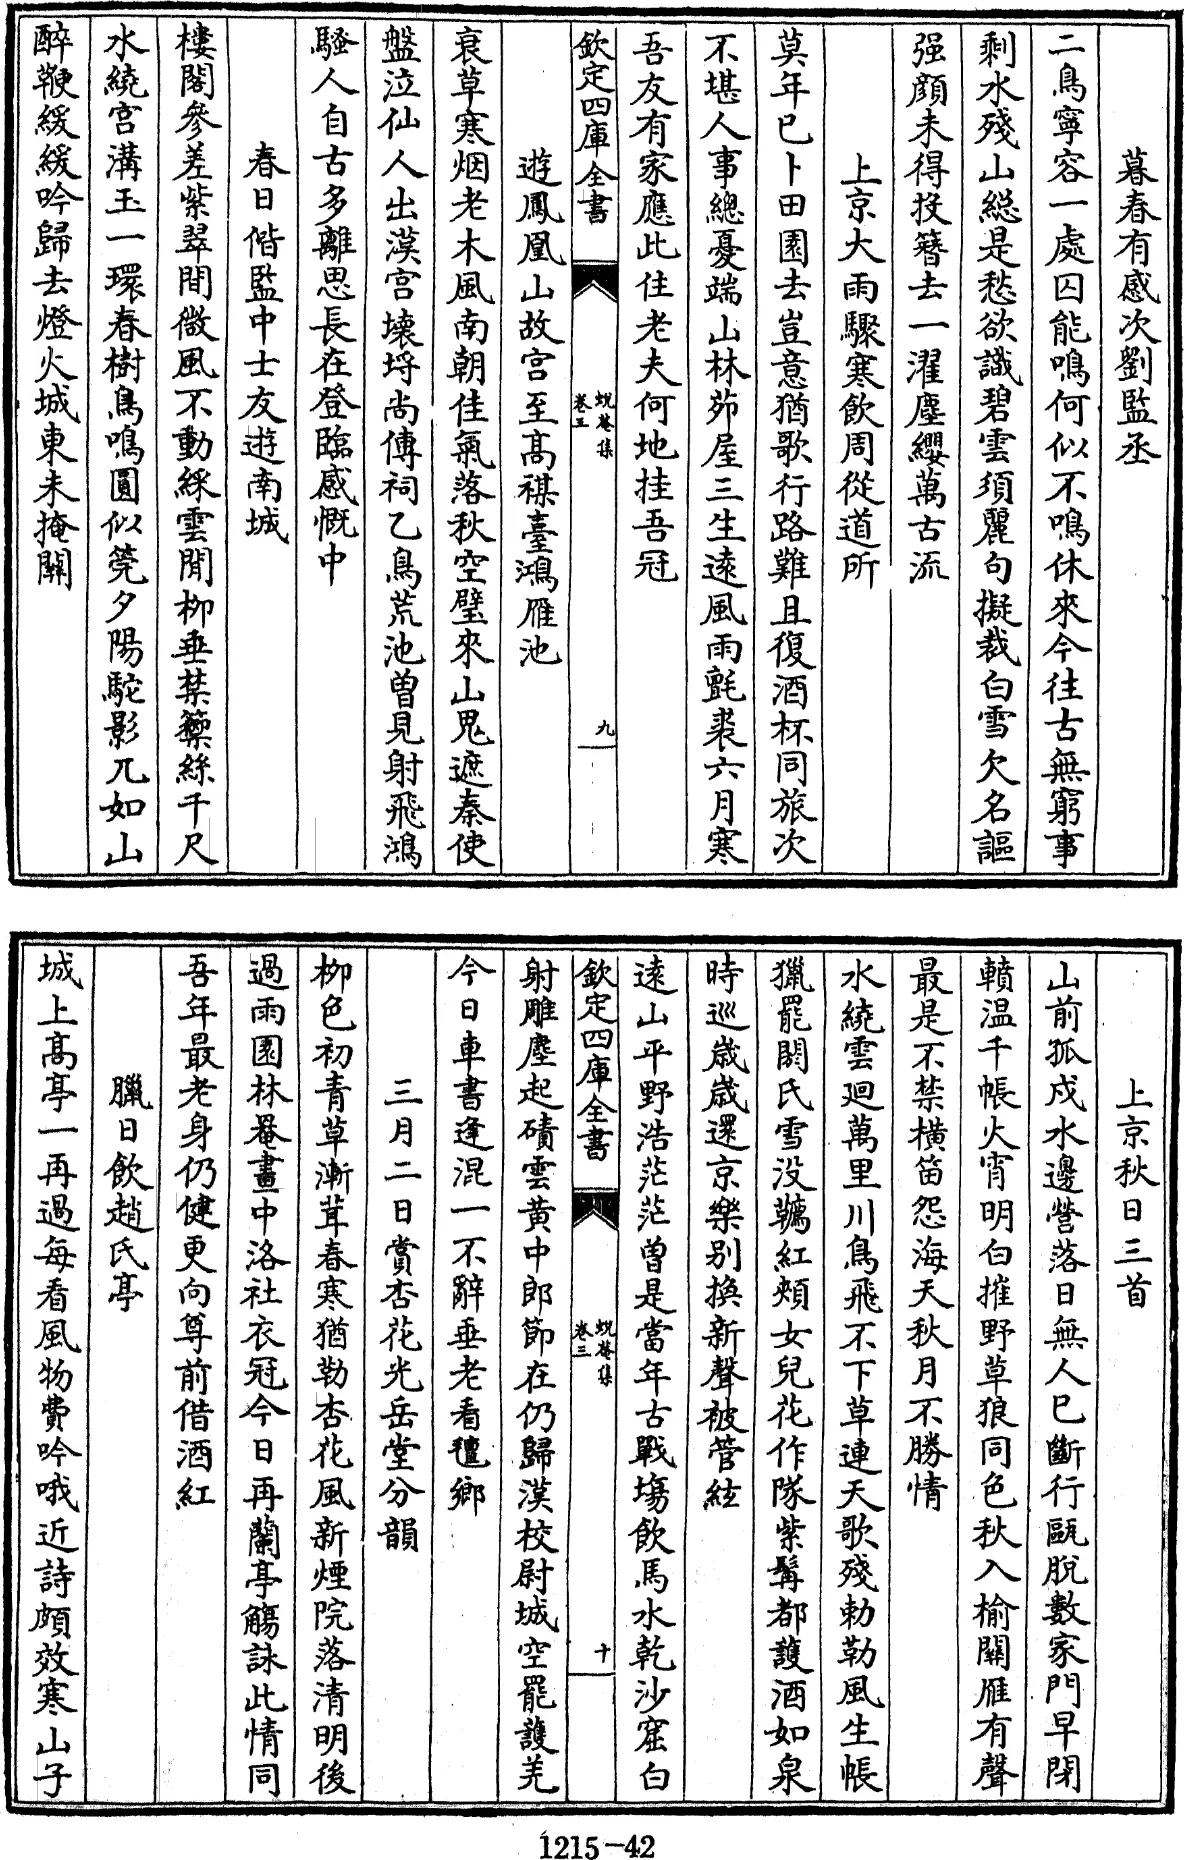 暮春有感次劉監丞
二鳥寧容一處囚能鳴何似不鳴休來今往古無窮事
剩水殘山総是愁欲識碧雲須麗句擬裁白雪欠名謳
强顔未得投簮去一濯塵纓萬古流
上京大雨驟寒飲周從道所
莫年已卜田園去豈意猶歌行路難且復酒杯同旅次
不堪人事總憂端山林茆屋三生逺風雨氊裘六月寒
吾友有家應此住老夫何地挂吾冠
欽定四庫全書
蛻菴集
卷三
九
遊鳳凰山故宫至髙禖臺鴻雁池
衰草寒烟老木風南朝佳氣落秋空璧來山鬼遮秦使
盤泣仙人出漢宫壊埒尚傳祠乙鳥荒池曽見射飛鴻
騷人自古多離思長在登臨感慨中
春日偕監中士友遊南城
樓閣參差紫翠間微風不動綵雲閒柳垂禁籞絲千尺
水繞宫溝玉一環春樹鳥鳴圓似筦夕陽駝影兀如山
醉鞭緩緩吟歸去燈火城東未掩闗
上京秋日三首
山前狐戍水邊營落日無人已斷行甌脱數家門早閉
轒温千帳火宵明白摧野草狼同色秋入榆闗雁有聲
最是不禁横笛怨海天秋月不勝情
水繞雲廻萬里川鳥飛不下草連天歌殘勅勒風生帳
獵罷閼氏雪没韉紅頰女兒花作隊紫髯都護酒如泉
時巡歳歳還京樂别換新聲被管絃
逺山平野浩茫茫曽是當年古戰塲飲馬水乾沙窟白
射雕塵起磧雲黄中郎節在仍歸漢校尉城空罷護羌
今日車書逢混一不辭垂老看氊鄉
欽定四庫全書
蛻菴集
卷三
十
三月二日賞杏花光岳堂分韻
柳色初青草漸茸春寒猶勒杏花風新煙院落清明後
過雨園林罨畫中洛社衣冠今日再蘭亭觴詠此情同
吾年最老身仍健更向尊前借酒紅
臘日飲趙氏亭
城上髙亭一再過每看風物費吟哦近詩頗效寒山子
1215-42